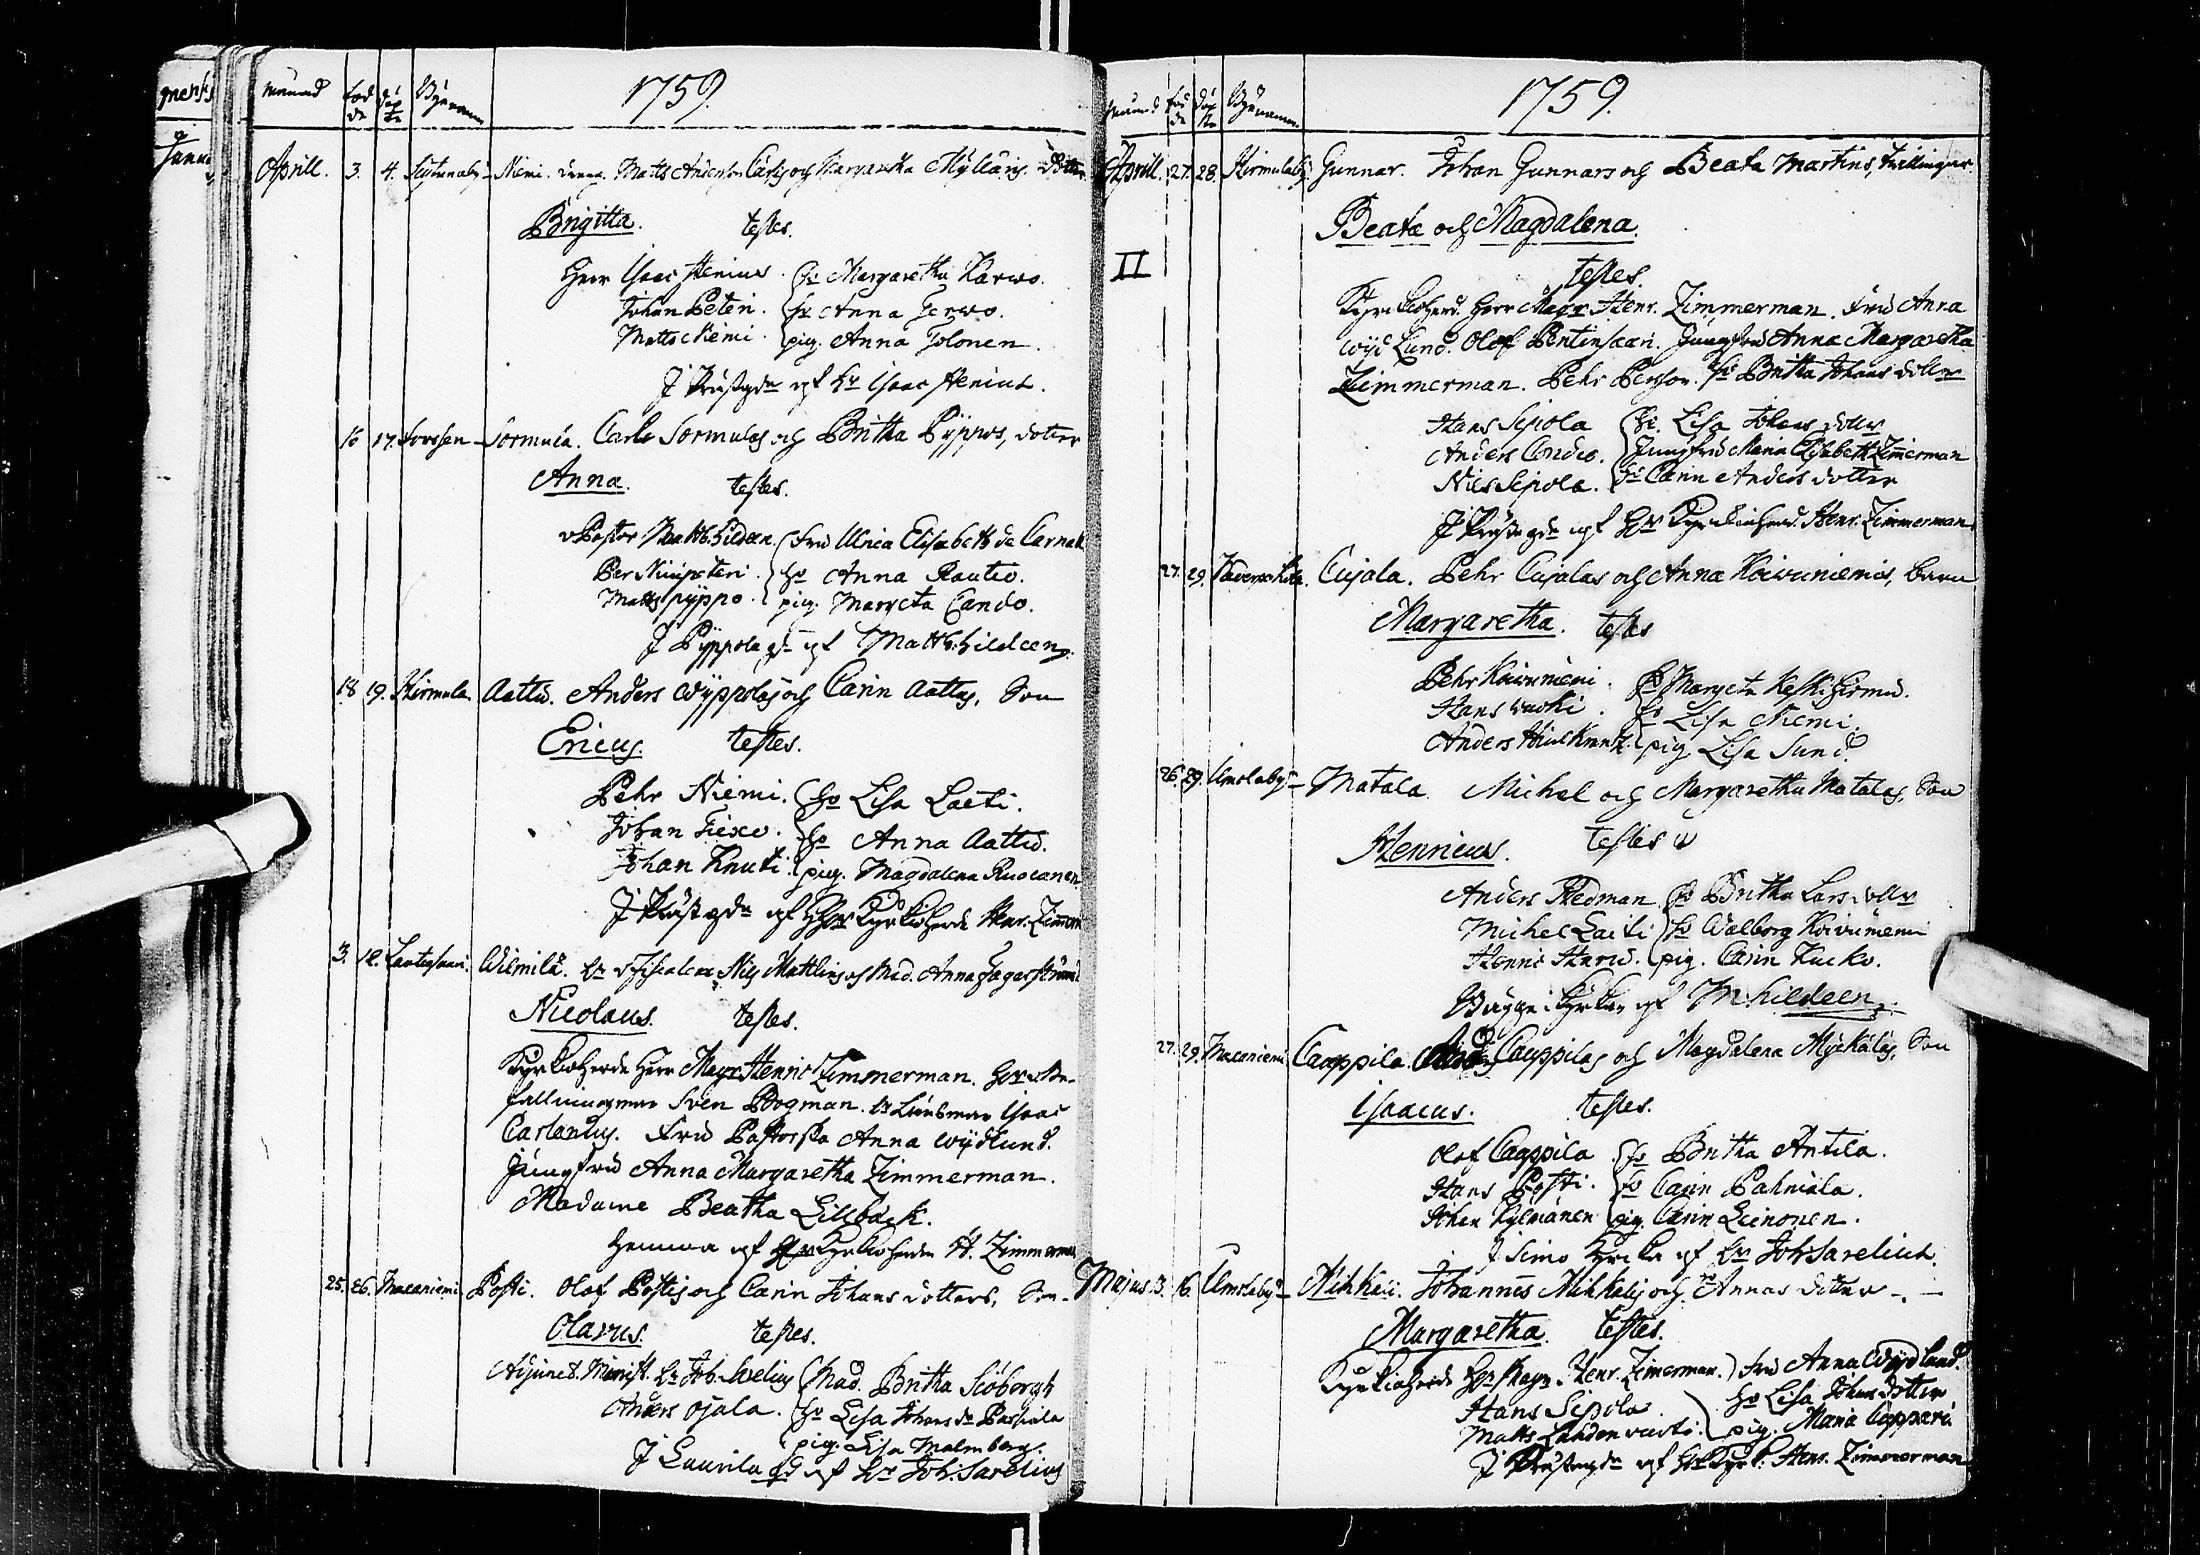 1759.
månad föd de döp te Bÿnamn
Aprill. 3. 4. Niemi. Matts Anders son och Margaretha Mÿllaris dotter
Brigitta. testes.
Herr Isaac Stenius. hu Margaretha Karwo.
Johan Peteri. hu Anna Jerwo.
Matts Niemi. pig. Anna Tolonen.
J Prästgdn af hr Isaac Stenius.
16 17. Sormula. Carls Sormulas och Britha Pÿppos, dotter
Anna. testes.
vPastor Matth: Hildeen. Fru Ulrica Elisabeth de Carnall
Per Nuupateri. hu Anna Rautio.
Matts pÿppo. pig. Margeta Cando.
J Pÿppola gdn af Matth: Hildeen.
18 19. Kirmula. Aattu. Anders Wÿppolas och Carin Aattus, Son
Ericus. testes.
Pehr Niemi. hu Lisa Laeti.
Johan Fiexo. hu Anna Aattu.
Johan Knuti. pig. Magdalena Ruocanen
J Prästgdn af Hr Kÿrkioherde Henr. Zimmerm
3. 12. Lautersaari. Wilmilä. Nils Mattlins och Mad. Anna Fagerströms
Nicolaus. testes.
Kÿrkioherde Herr Mag Henric Zimmerman. Hr Be-
fallningsman Sven Bogman. hr Länsman Isaac
Carlenius. Fru Pastorska Anna Wÿdlund.
Jungfru Anna Margaretha Zimmerman.
Madame Beatha Lillbäck.
Hemma af Hr Kÿrkioherden H. Zimmerman
25. 26. Maxaniemi Posti. Olof Postis och Carin Johans dotters, Son
Olavus. testes.
Adjunct. Minist. hr Joh. Sarelius Mad. Britha Siöbergh
Anders Ojala. hu Lisa Johans dr
pig. Lisa Malmberg.
J Laurila gd af hr Joh: Sarelius
1759.
månad föd de döp te Bÿnamn
Aprill. 27. 28. Kirmulabÿ. Gunnar. Johan Gunnars och Beata Martins, tvillingar
Beata och Magdalena.
II
testes.
Kÿrkioherd. Herr Mag Henr. Zimmerman. Fru Anna
Wÿdlund. Olof Pentinsaari. Jungfru Anna Margaretha
Zimmerman. Pehr Persson. hu Britha Johans dotter
Hans Sipola hu. Lisa Johans dotter
Anders Condio. Jungfru Maria Elisabeth Zimerman
Nils Sipola. hu Carin Anders dotter
J Prästgdn af Hr Kÿrkioherd. Henr. Zimmerman.
27. 29. Cujala. Pehr Cujalas och Anna Koivuniemis, barn
Margaretha. testes
Pehr Koivuniemi. hu Margeta Keskihirmu.
Hans wuoki. hu Lisa Niemi.
Anders pig Lisa Sund.
26. 29. Simolabÿ Matala Michel och Margaretha Matalas, Son
Henricus. testes
Anders Hedman hu Britha Lars dotter
Michel Laiti hu Walborg Koivuniemi
Henric Harw. pig. Carin Kucko.
Bägge i kÿrkan af M: Hildeen.
27. 29. Maxaniemi Cauppila. Cauppilas och Magdalena Mÿckäläs, Son
Isaacus. testes.
Olof Cauppila hu Britha Antila.
Hans Posti. hu Carin Pahniala.
Johan Kÿlmänen pig. Carin Leinonen.
J Simo Kÿrka af hr Joh. Sarelius.
Majus 3. 6. Simolabÿ Mihkeli. Johannes Mihkelis och Annas dotter
Margaretha. testes.
Kÿrkioherde Hr Mag Henr. Zimerman. Fru Anna Wÿdlund.
Hans Sipola hu Lisa Johans dotter
Matts pig. Maria Coppari
J Prästegdn af Hr Kÿrk: Henr. Zimmerman